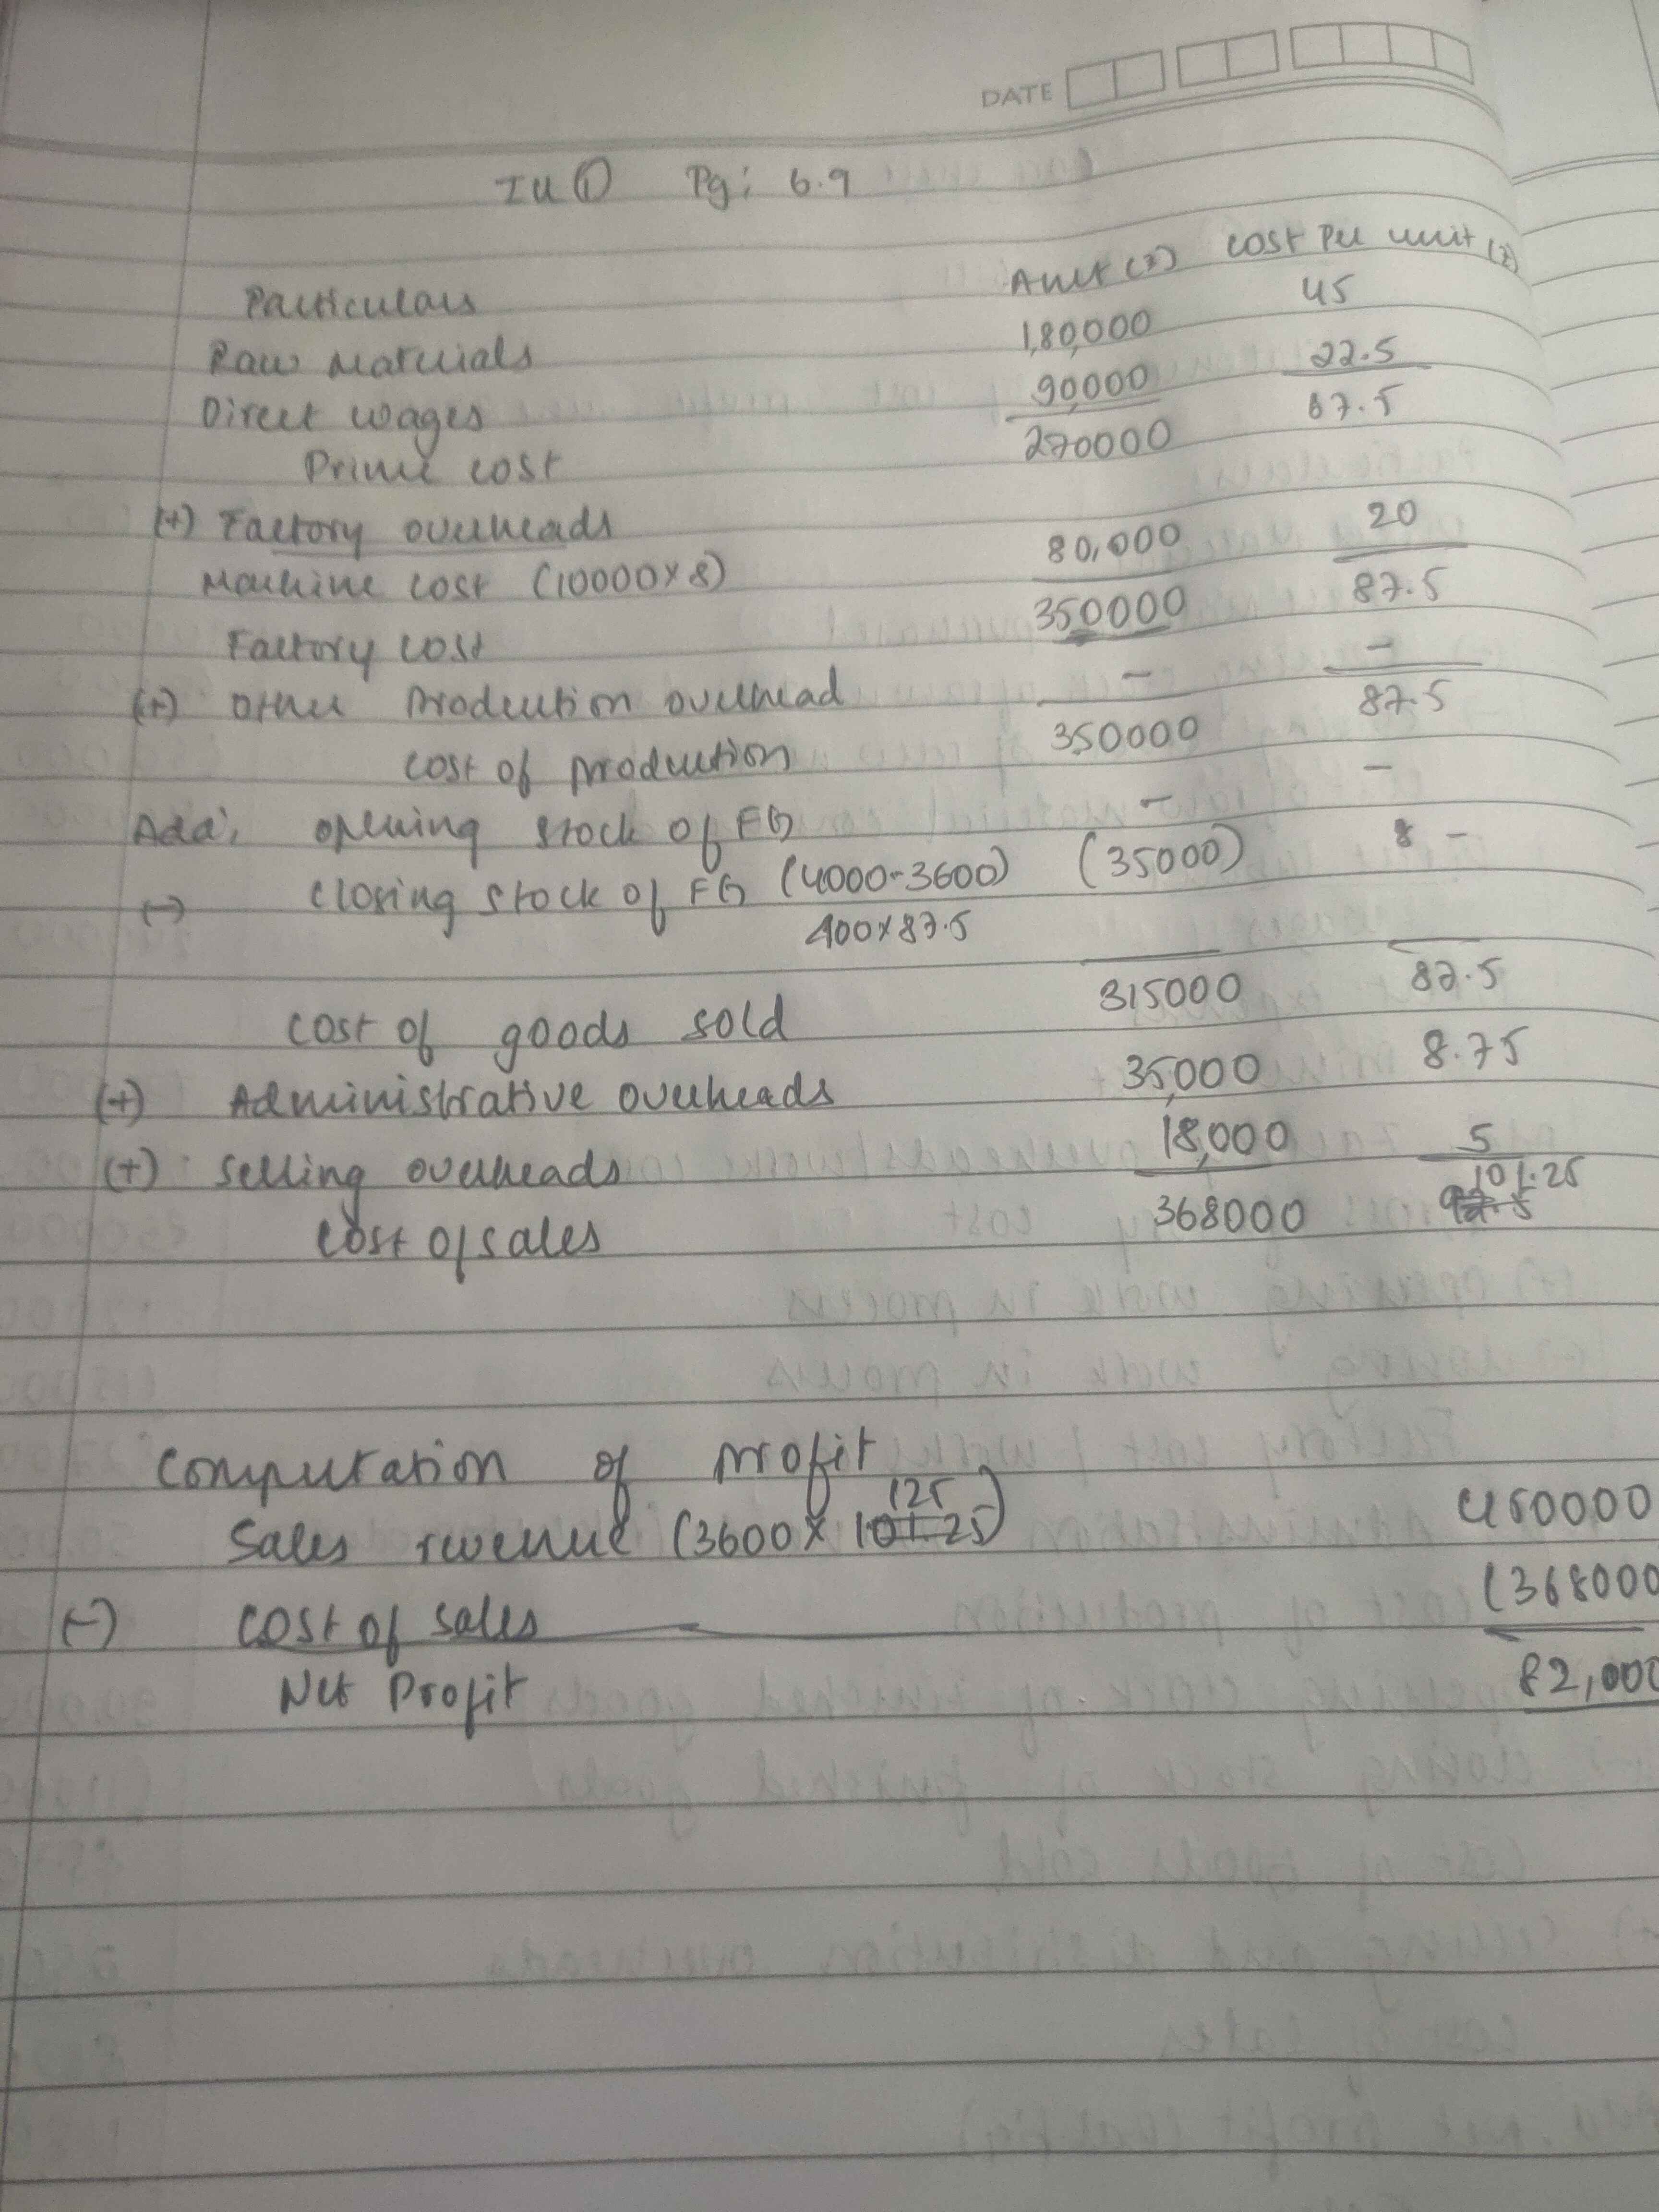 DATE
Ill ① Pg: 6.9
Particulars Amt (₹) cost per unit (₹)
Raw materials 1,80,000 45
Direct wages 90,000 22.5
Prime cost 270000 67.5
(+) Factory overheads
Machine cost (10000×8) 80,000 20
Factory cost 350000 87.5
(+) other production overhead - -
cost of production 350000 87.5
Add: opening stock of FG - -
(-) closing stock of FG (4000-3600) (35000) -
400×87.5
cost of goods sold 315000 87.5
(+) Administrative overheads 35,000 8.75
(+) selling overheads 18,000 5
cost of sales 368000 101.25
Computation of profit
Sales revenue (3600 × 125) 450000
(-) cost of sales (368000
Net Profit 82,000